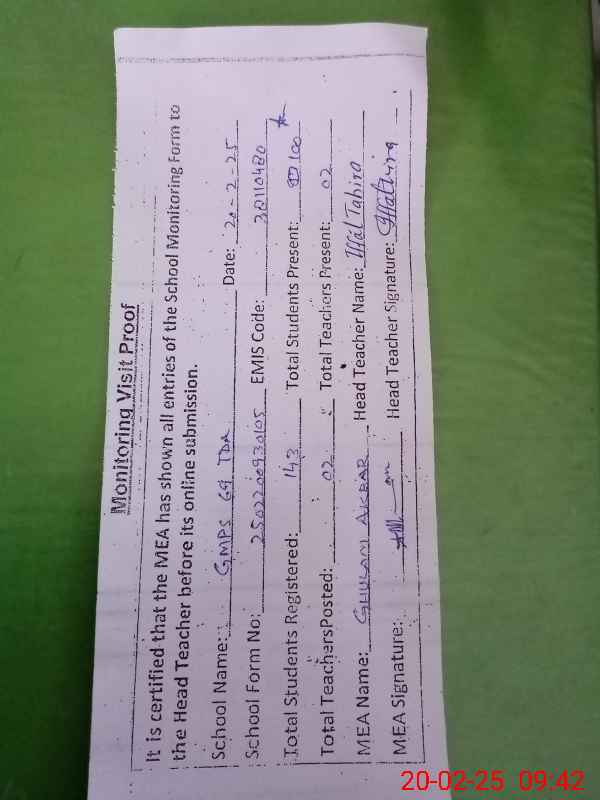 Monitoring Visit Proof
It is certified that the MEA has shown all entries of the School Monitoring Form to
the Head Teacher before its online submission.
School Name: GMPS 69 TDA Date: 20-2-25
School Form No: 2502200930105 EMIS Code: 32110480
Total Students Registered: 143 Total Students Present: 100
Total TeachersPosted: 02 Total Teachers Present: 02
MEA Name: GHULAM AKBAR Head Teacher Name: Iffat Tahira
MEA Signature: Head Teacher Signature:
20-02-25 09:42